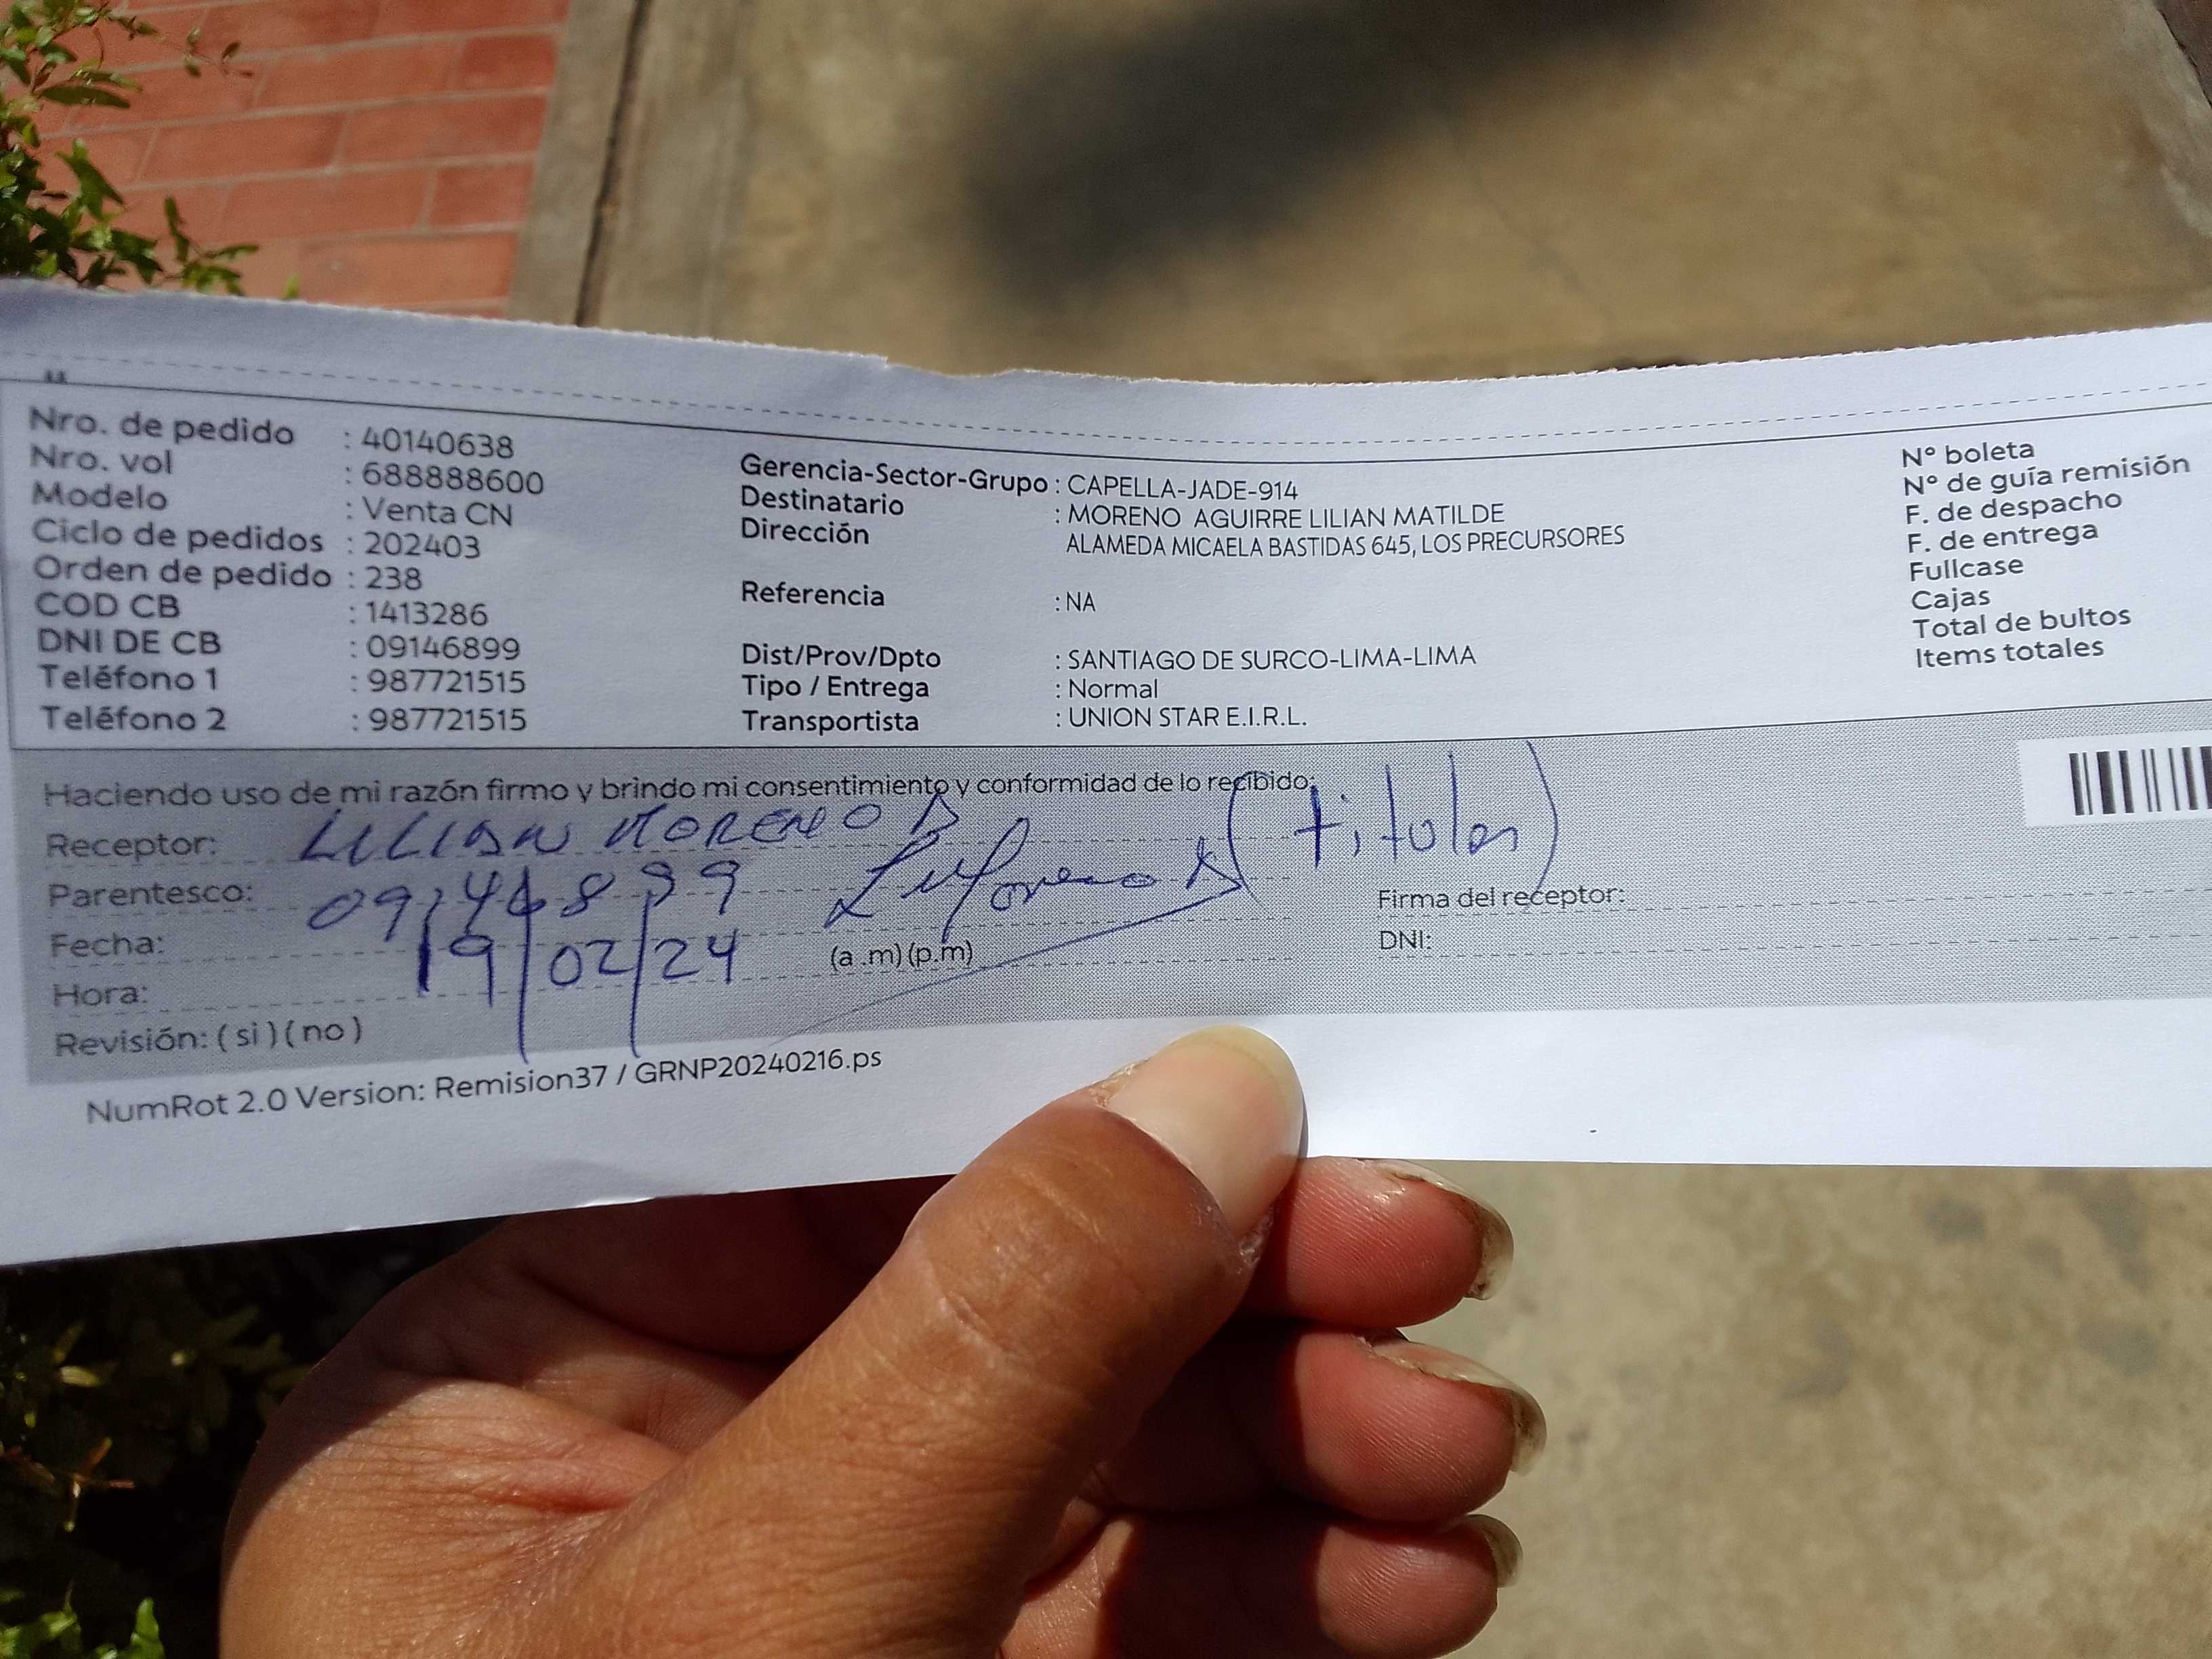 Nro. de pedido : 40140638
Nro. vol : 688888600
Modelo : Venta CN
Ciclo de pedidos : 202403
Orden de pedido : 238
COD CB : 1413286
DNI DE CB : 09146899
Teléfono 1 : 987721515
Teléfono 2 : 987721515
Gerencia-Sector-Grupo : CAPELLA-JADE-914
Destinatario : MORENO AGUIRRE LILIAN MATILDE
Dirección ALAMEDA MICAELA BASTIDAS 645, LOS PRECURSORES
Referencia : NA
Dist/Prov/Dpto : SANTIAGO DE SURCO-LIMA-LIMA
Tipo / Entrega : Normal
Transportista : UNION STAR E.I.R.L.
N° boleta
N° de guía remisión
F. de despacho
F. de entrega
Fullcase
Cajas
Total de bultos
Items totales
Haciendo uso de mi razón firmo y brindo mi consentimiento y conformidad de lo recibido:
Receptor: LILIAN MORENO A (titular)
Parentesco: 09146899 LiMoreno A
Firma del receptor:
Fecha: 19/02/24 (a.m)(p.m)
DNI:
Hora:
Revisión: ( si ) ( no )
NumRot 2.0 Version: Remision37 / GRNP20240216.ps